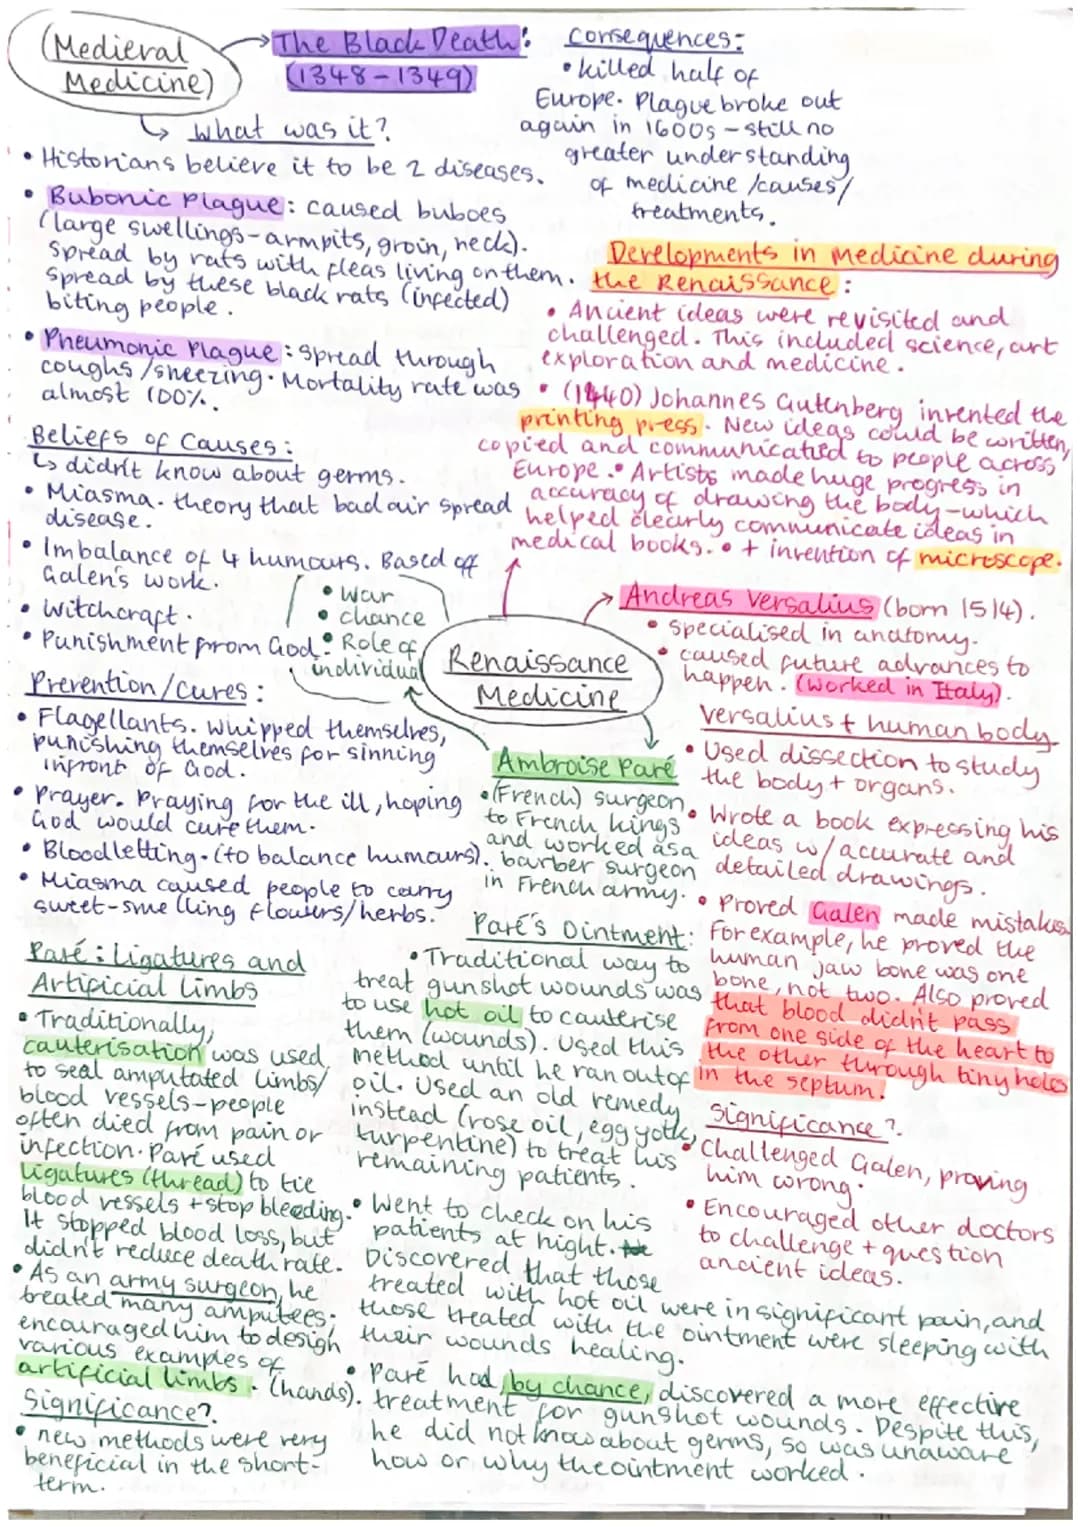 (Medieval
Medicine)
The Black Death:
(1348-1349)
↳ What was it?
• Historians believe it to be 2 diseases.
• Bubonic Plague: caused buboes
(large swellings-armpits, groin, neck).
Spread by rats with fleas living on them.
Spread by these black rats (infected)
biting people.
• Pneumonic Plague: spread through
coughs/sneezing. Mortality rate was
almost 100%.
Beliefs of Causes:
↳ didn't know about germs.
• Miasma. theory that bad air spread
disease.
• Imbalance of 4 humours. Based off
Galen's work.
• Witchcraft.
• Punishment from God.
Prevention/Cures:
• Flagellants. Whipped themselves,
punishing themselves for sinning
infront of God.
• Prayer. Praying for the ill, hoping
God would cure them.
• Bloodletting. (to balance humours).
• Miasma caused people to carry
sweet-smelling flowers/herbs.
Consequences:
• killed half of
Europe. Plague broke out
again in 1600s - still no
greater understanding
of medicine/causes/
treatments.
Developments in medicine during
the Renaissance:
• Ancient ideas were revisited and
challenged. This included science, art
exploration and medicine.
• (1440) Johannes Gutenberg invented the
printing press. New ideas could be written,
copied and communicated to people across
Europe. • Artists made huge progress in
accuracy of drawing the body-which
helped clearly communicate ideas in
medical books. • + invention of microscope.
• War
• chance
• Role of
individual
Renaissance
Medicine
Andreas Versalius (born 1514).
• specialised in anatomy.
• caused future advances to
happen. (Worked in Italy).
Versalius + human body
• Used dissection to study
the body + organs.
• Wrote a book expressing his
ideas w/accurate and
detailed drawings.
• Proved Galen made mistakes
For example, he proved the
human jaw bone was one
bone, not two. Also proved
that blood didn't pass
from one side of the heart to
the other through tiny holes
in the septum.
Significance?
• Challenged Galen, proving
him wrong.
• Encouraged other doctors
to challenge + question
ancient ideas.
Ambroise Paré
• (French) surgeon
to French kings
and worked as a
barber surgeon
in French army.
Paré's Ointment:
• Traditional way to
treat gunshot wounds was
to use hot oil to cauterise
them (wounds). Used this
method until he ran out of
oil. Used an old remedy
instead (rose oil, egg yolk,
turpentine) to treat his
remaining patients.
• Went to check on his
patients at night.
Discovered that those
treated with hot oil were in significant pain, and
those treated with the ointment were sleeping with
their wounds healing.
• Paré had, by chance, discovered a more effective
treatment for gunshot wounds. Despite this,
he did not know about germs, so was unaware
how or why the ointment worked.
Paré: Ligatures and
Artificial Limbs
• Traditionally,
cauterisation was used
to seal amputated limbs/
blood vessels-people
often died from pain or
infection. Paré used
ligatures (thread) to tie
blood vessels + stop bleeding.
It stopped blood loss, but
didn't reduce death rate.
• As an army surgeon, he
treated many amputees.
encouraged him to design
various examples of
artificial limbs. (hands).
Significance?
• new methods were very
beneficial in the short-
term.